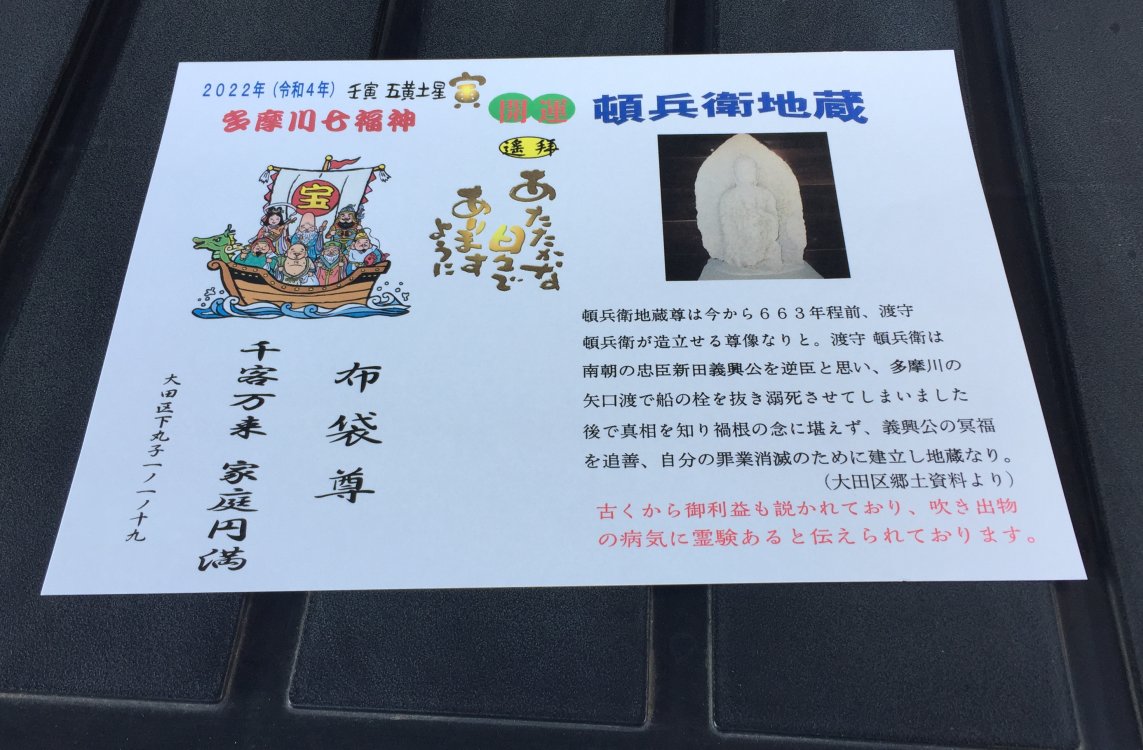 2022年(令和4年) 壬寅 五黄土星 寅
多摩川七福神
宝
開運
遙拝
あたたかな
日々で
あります
ように
布袋尊
千客万来 家庭円満
大田区下丸子一ノ一ノ十九
頓兵衛地蔵
頓兵衛地蔵尊は今から663年程前、渡守
頓兵衛が造立せる尊像なりと。渡守 頓兵衛は
南朝の忠臣新田義興公を逆臣と思い、多摩川の
矢口渡で船の栓を抜き溺死させてしまいました
後で真相を知り禍根の念に堪えず、義興公の冥福
を追善、自分の罪業消滅のために建立し地蔵なり。
(大田区郷土資料より)
古くから御利益も説かれており、吹き出物
の病気に霊験あると伝えられております。